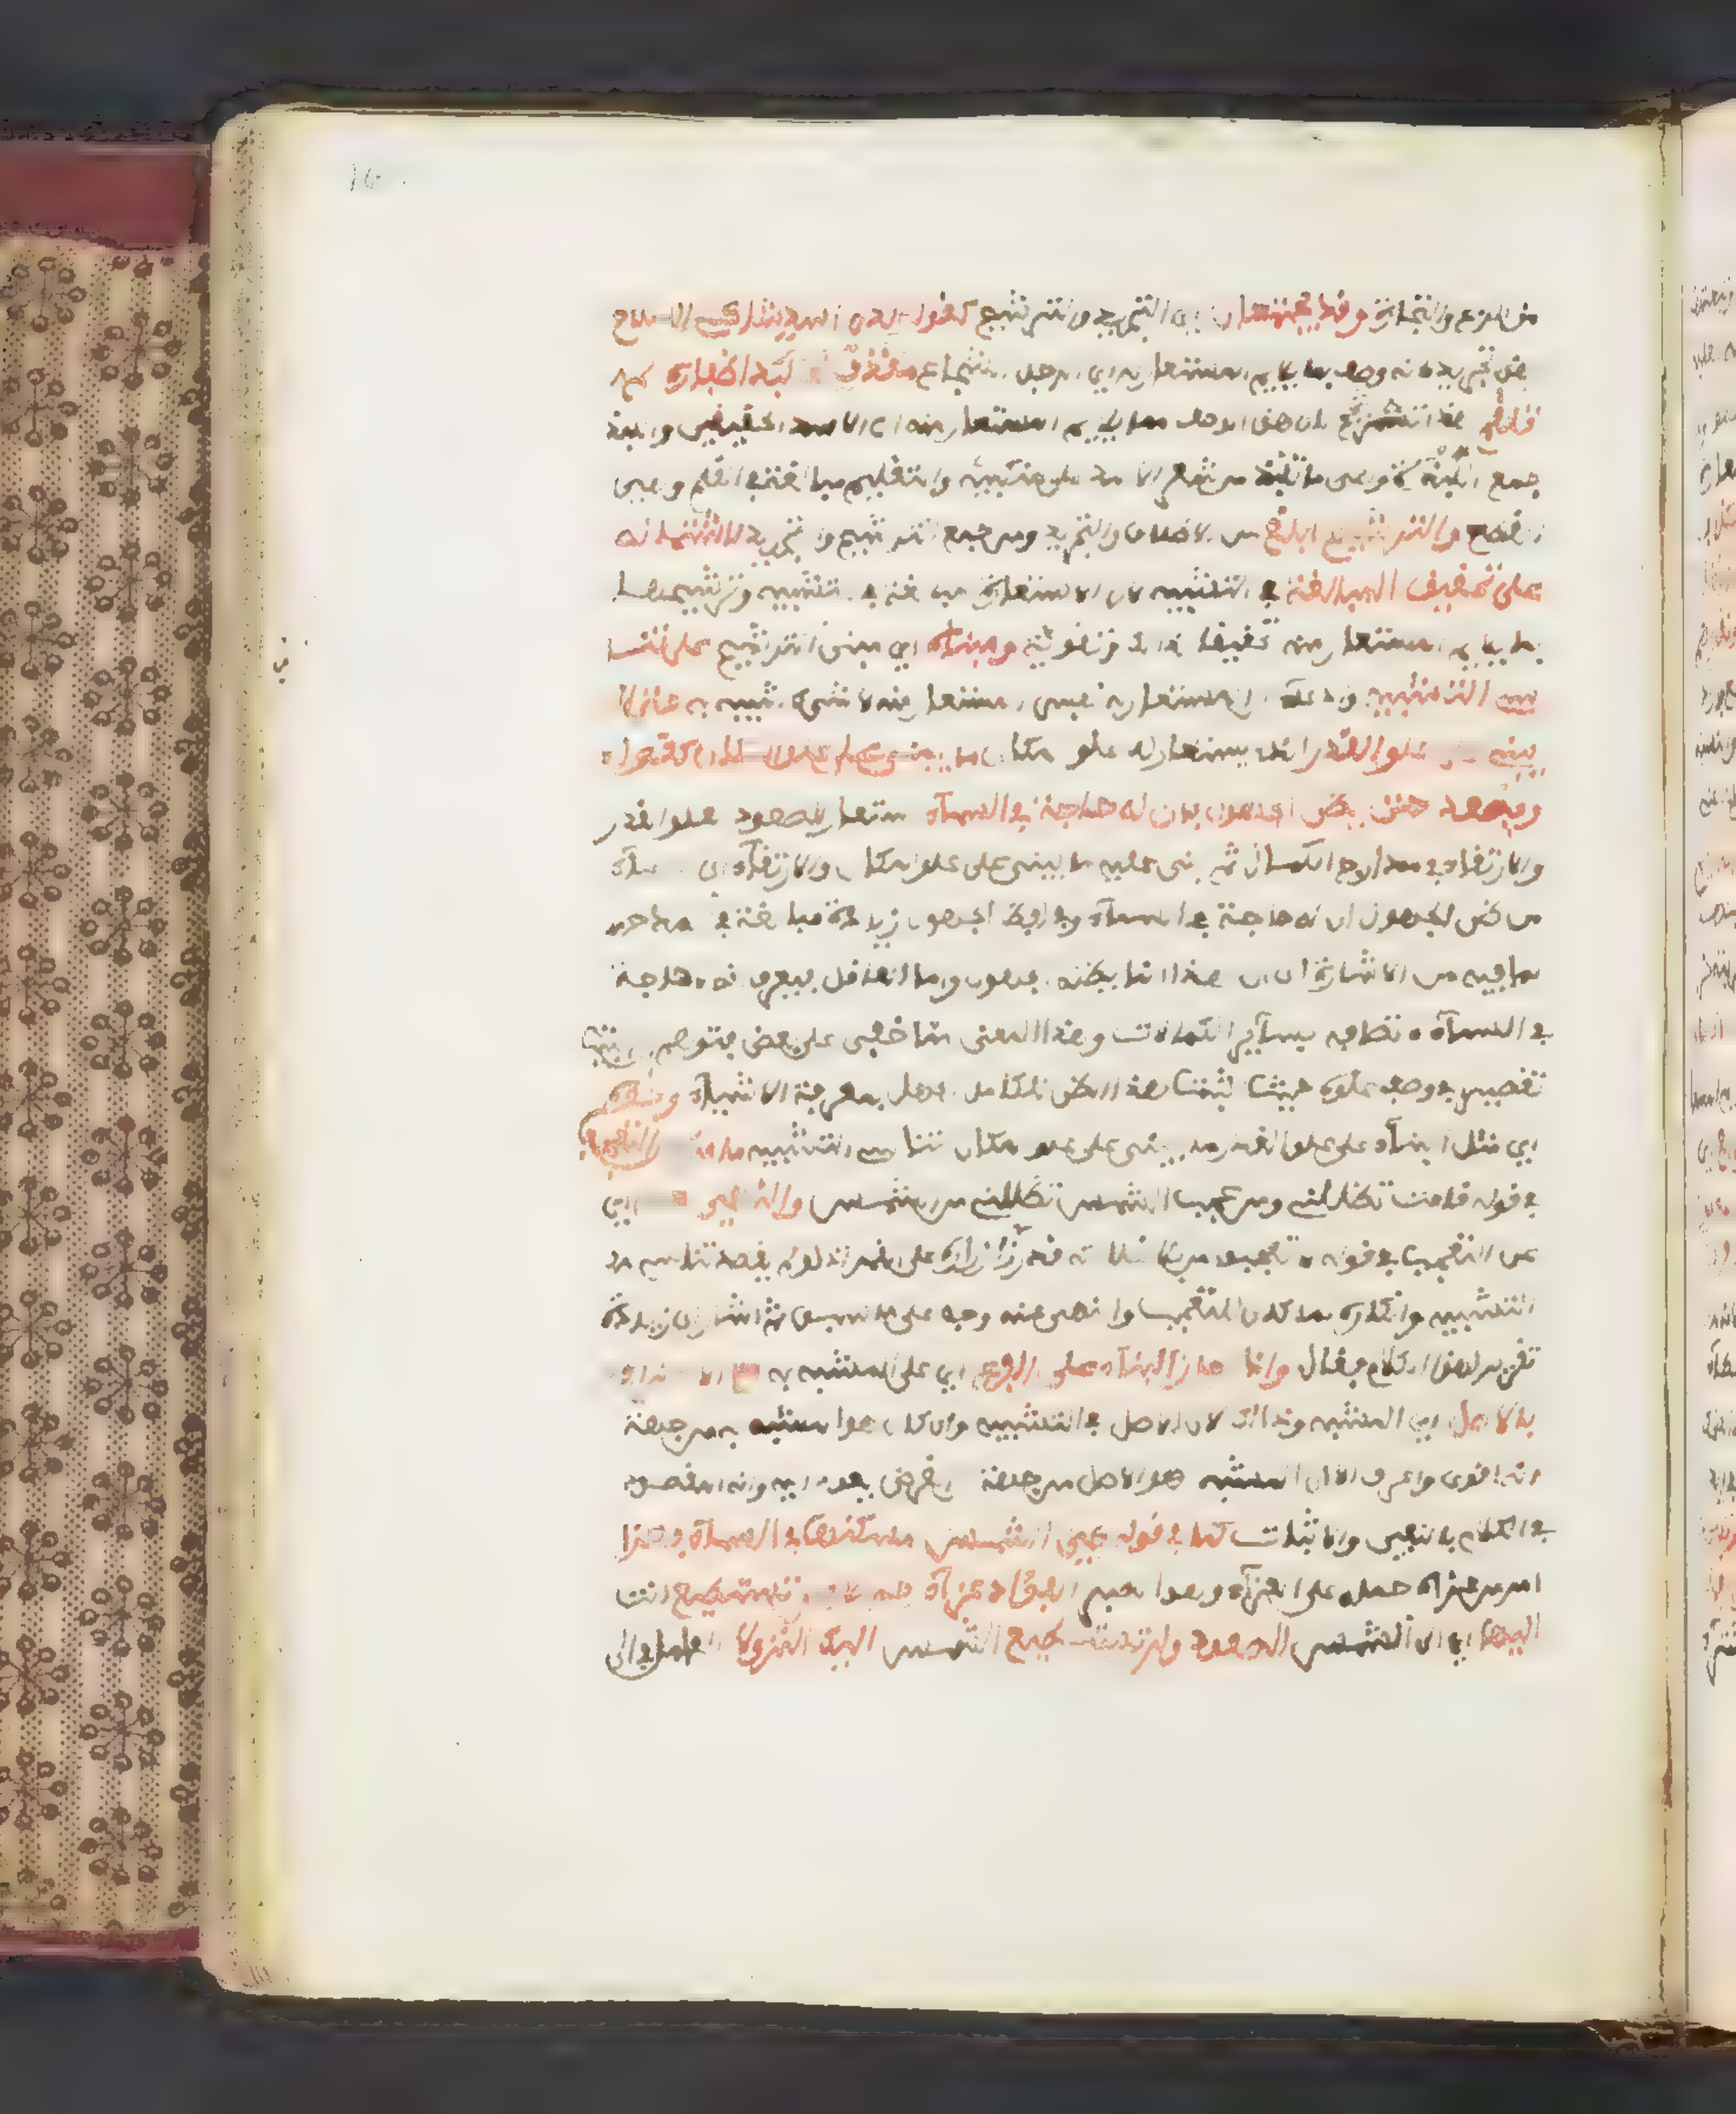 من الربح والتجارة وقد يجتمعان اي التجريد والترشيح كقوله لدى اسد شاكي السلاح
هذا تجريد لانه وصف بما يلايم المستعار له اي الرجل الشجاع مقذف له لبد اظفاره لم
تقلم هذا ترشيح لان هذا الوصف مما يلايم المستعار منه اي الاسد الحقيقي واللبد
جمع لبدة وهي ما تلبد من شعر الاسد على منكبيه والتقليم مبالغة القلم وهي
القطع والترشيح ابلغ من الاطلاق والتجريد ومن جمع الترشيح والتجريد لاشتماله
على تحقيق المبالغة في التشبيه لان الاستعارة مبالغة في التشبيه وترشيحها
بما يلايم المستعار منه تحقيق لذلك وتقوية ومبناه اي مبنى الترشيح على تناسي
التشبيه وادعاء ان المستعار له نفس المستعار منه لا شيء شبيه به حتى انه
يبنى على علو القدر الذي يستعار له علو المكان ما يبنى على علو المكان كقوله
ويصعد حتى يظن الجهول بان له حاجة في السماء استعار الصعود لعلو القدر
والارتقاء في مدارج الكمال ثم بنى عليه ما يبنى على علو المكان والارتقاء الى السماء
من ظن الجهول ان له حاجة في السماء وفي لفظ الجهول زيادة مبالغة في المدح
لما فيه من الاشارة الى ان هذا انما يظنه الجهول واما العاقل فيعرف انه لا حاجة
في السماء لاتصافه بسائر الكمالات وهذا المعنى مما خفي على بعضهم فتوهم ان في البيت
تقصير في وصف علوه حيث اثبت هذا الظن للكامل الجهل بمعرفة الاشياء ونحوه
اي مثل البناء على علو القدر ما يبنى على علو المكان لتناسي التشبيه ما مر من التعجب
في قوله قامت تظللني ومن عجب شمس تظللني من الشمس والنهي عنه اي
عن التعجب في قوله لا تعجبوا من بلى غلالته قد زر ازراره على القمر اذ لو لم يقصد تناسي
التشبيه وانكاره لما كان للتعجب والنهي عنه وجه على ما سبق ثم اشار الى زيادة
تقرير لهذا الكلام فقال واذا جاز البناء على الفرع اي على المشبه به مع الاعتراف
بالاصل اي المشبه وذلك لان الاصل في التشبيه وان كان هو المشبه به من جهة
انه اقوى واعرف الا ان المشبه هو الاصل من جهة ان الغرض يعود اليه وانه المقصود
في الكلام بالنفي والاثبات كما في قوله هي الشمس مسكنها في السماء فعز
امر من عزاه حمله على العزاء وهو الصبر الفؤاد عزاء جميلا فلن تستطيع انت
اليها اي الى الشمس الصعود ولن تستطيع الشمس اليك النزولا العامل في الى